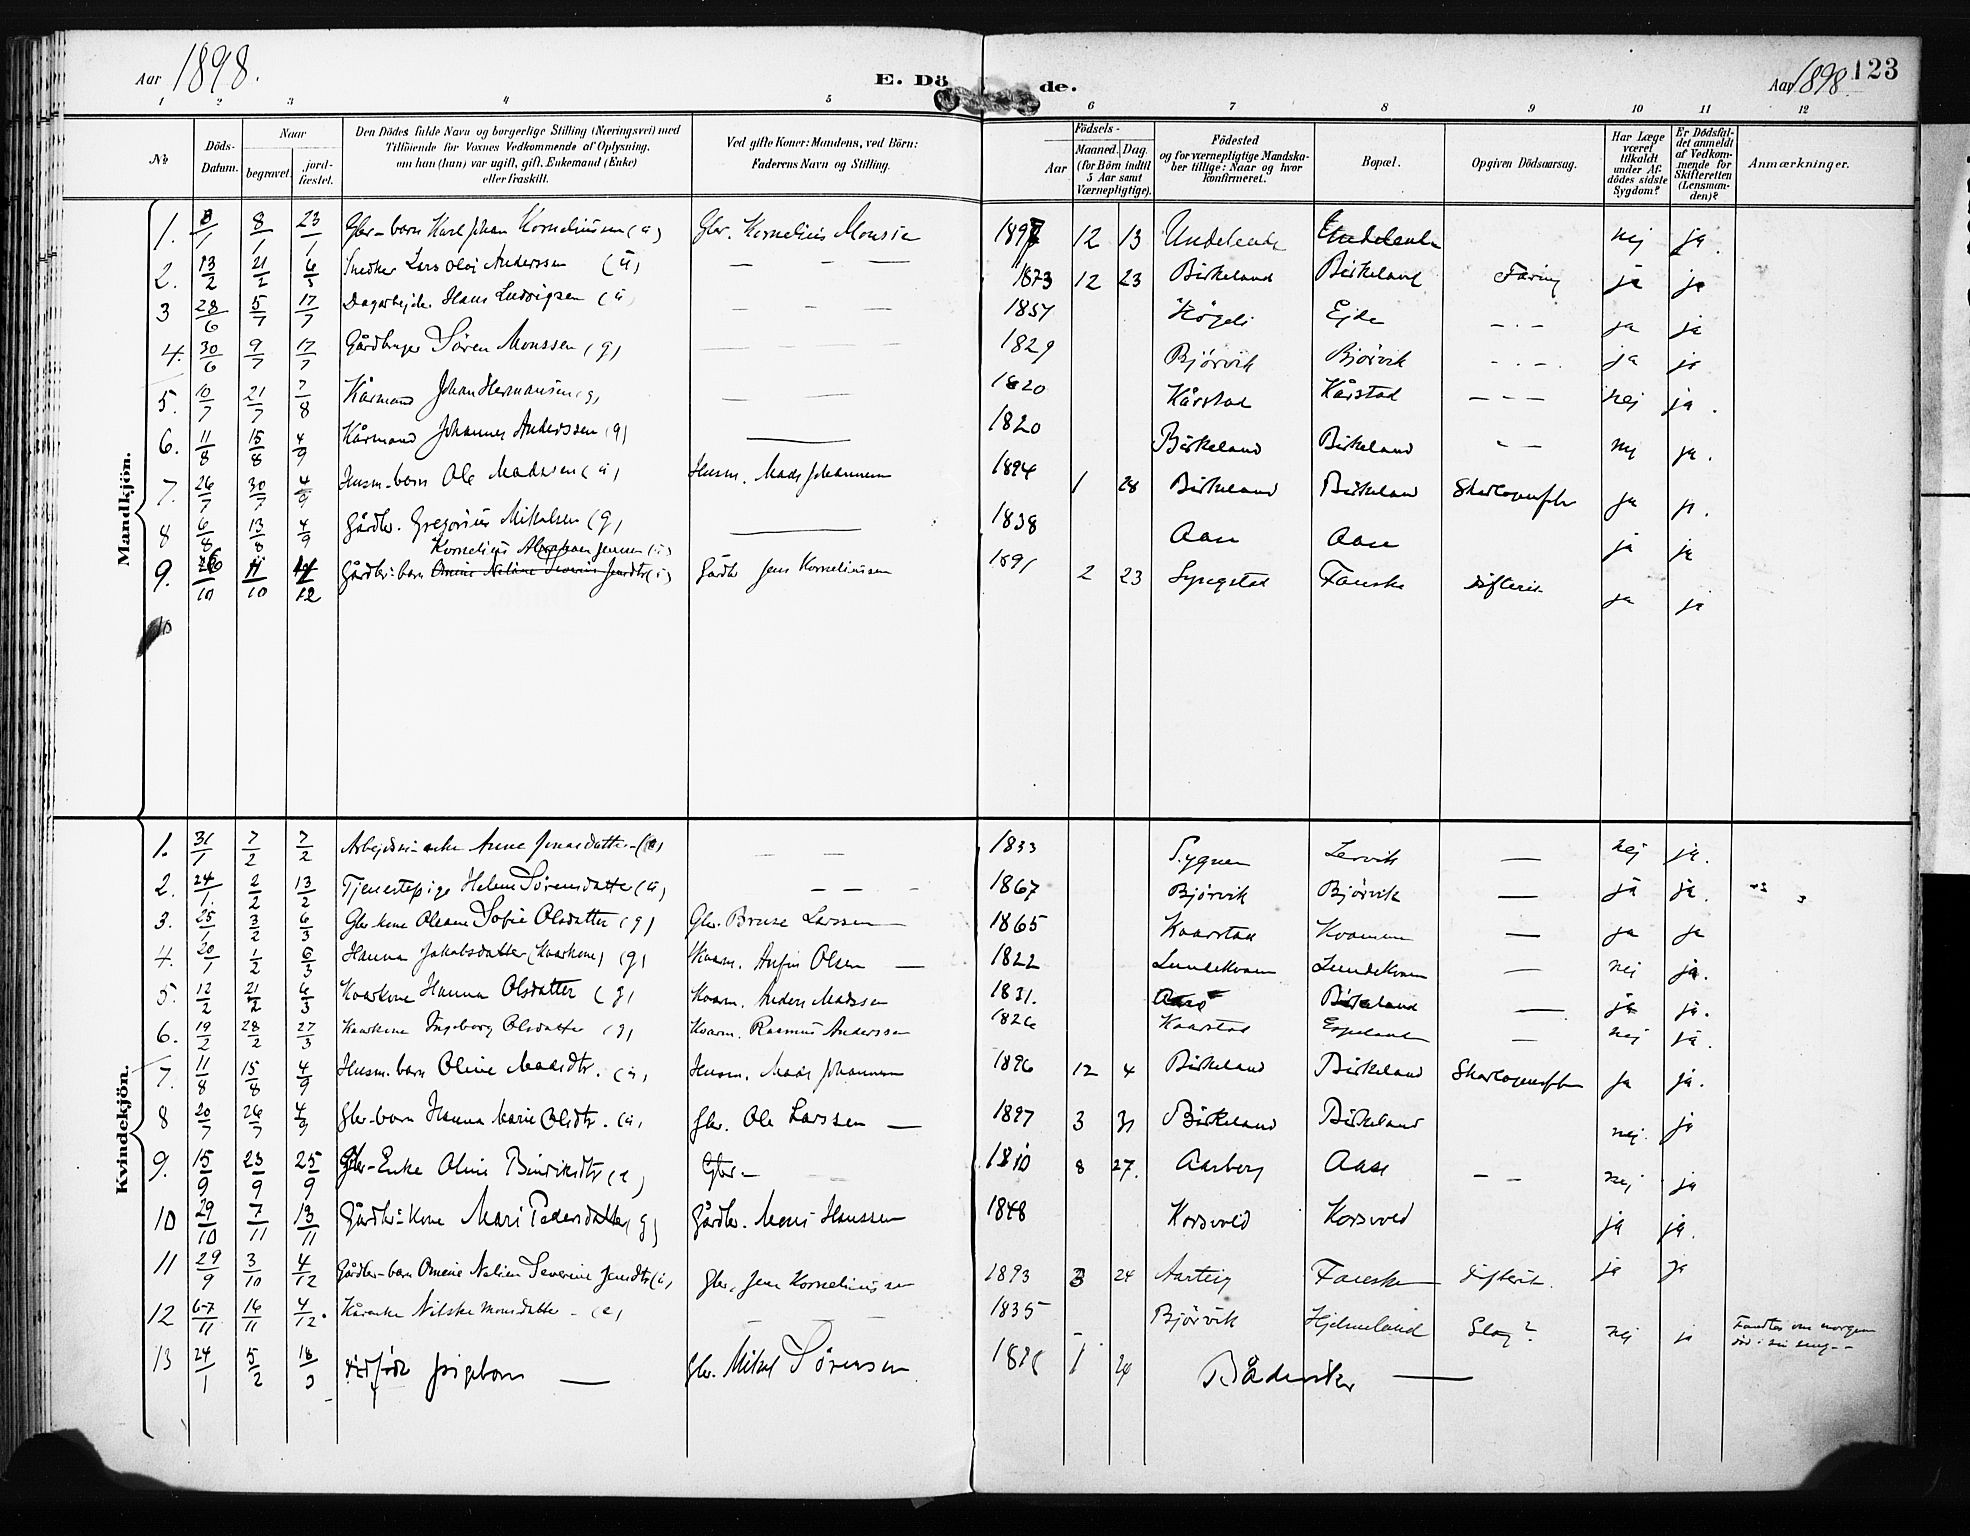 Aar 1898.
E. Dö de.
Aar 1898.
123
1 2 3 4 5 6 7 8 9 10 11 12
No
Döds-Datum.
Naar begravet. jord-fæstet.
Den Dödes fulde Navn og borgerlige Stilling (Næringsvei) med Tilföiende for Voxnes Vedkommende af Oplysning, om han (hun) var ugift, gift, Enkemand (Enke) eller fraskilt.
Ved gifte Koner: Mandens, ved Börn: Faderens Navn og Stilling.
Födsels-
Aar Maaned. Dag. (for Börn indtil 5 Aar samt Værnepligtige).
Födested og for værnepligtige Mandskaber tillige: Naar og hvor konfirmeret.
Bopæl.
Opgiven Dödsaarsag.
Har Læge været tilkaldt under Afdödes sidste Sygdom?
Er Dødsfaldet anmeldt af Vedkommende for Skifteretten (Lensmanden)?
Anmærkninger.
Mandkjön.
1. 8/1 8/1 23/1 Gbr-barn Karl Johan Korneliussen (u) Gbr. Kornelius Monsen 1897 12 13 Undeland Undeland nej ja.
2. 13/2 21/2 6/3 Snedker Lars Olai Anderssen (u) — — — 1873 12 23 Birkeland Birkeland Tæring ja ja
3 28/6 5/7 17/7 Dagarbejder Hans Ludvigsen (u) — — — 1857 Ejde — . — ja ja
4. 30/6 9/7 17/7 Gårdbruger Søren Monssen (g) 1829 Bjørvik Bjørvik ja ja
5. 10/7 21/7 7/8 Kårmand Johan Hermansen (g) — — 1820 Kårstad Kårstad — — — nej ja.
6. 11/8 15/8 4/9 Kårmand Johannes Anderssen (g) — 1820 Birkeland Birkeland — nej ja.
7. 26/7 30/7 4/9 Husm-barn Ole Madssen (u) Husm. Mads Johannessen 1894 1 28 Birkeland Birkeland Skarlagensfeber ja ja.
8 6/8 13/8 4/9 Gårdbr. Gregorius Mikalsen (g) — 1838 Aase Aase ja ja
Kornelius Abraham Jensen (u)
9. 26/10 11/10 4/12 Gårdbr-barn Omine Neline Severine Jensdtr (u) Gårdbr Jens Korneliussen 1891 2 23 Syngstad Fauske difterit ja ja
10
Kvindekjön.
1. 31/1 7/2 7/2 Arbejdsm-enke Anne Jonasdatter (e) — — 1833 Sygnen Lervik — nej ja.
2. 24/1 2/2 13/2 Tjenestepige Helene Sørensdatter (u) — — — 1867 Bjørvik Bjørvik — ja ja.
3. 25/1 3/2 6/3 Gbr-kone Oleane Sofie Olsdatter (g) Gbr. Larssen 1865 Kaarstad — ja ja
4. 20/1 1/2 6/3 Hanna Jakobsdatter (Kaarkone) (g) Kaarm. Anfin Olsen — 1822 Lundekvam Lundekvam — nej ja.
5. 12/2 21/2 6/3 Kaarkone Hanna Olsdatter (g) Kaarm. Anders Madssen 1831. Birkeland — ja ja.
6. 19/2 28/2 27/3 Kaarkone Ingeborg Olsdatter (g) Kaarm. Rasmus Anderssen 1826 Kaarstad Espeland — nej ja.
7. 11/8 15/8 4/9 Husm.barn Oline Madsdtr. (u) Husm. Mads Johannessen 1896 12 4 Birkeland Birkeland Skarlagensfeber ja ja.
8 20/7 26/7 4/9 Gbr-barn Hanna Marie Olsdtr. (u) Gbr. Ole Larssen — 1897 3 31 Birkeland Birkeland nej. ja
9. 15/9 23/9 25/9 Gbr-Enke Oline (e) Gbr — 1810 8 27. Aarberg Aase — — nej ja
10 29/10 7/11 13/11 Gårdbr-kone Mari Pedersdatter (g) Gårdbr. Mons Hanssen 1848 Korsvold Korsvold ja ja.
11 29/9 3/10 4/12 Gårdbr-barn Omine Neline Severine Jensdtr (u) Gbr. Jens Korneliussen 1893 3 24 Fauske difterit. ja ja
12 6-7/11 16/11 4/12. Kårenke Nilske Monsdatter — (e) — — — 1835 Bjørvik Hjelmeland Slag? nej ja Fandtes om morgenen død i sin seng —
13 24/1 5/2 18/3 dødfødt pigebarn — Gbr. Mikal Sørensen 1898 1 24 Bådsvik —